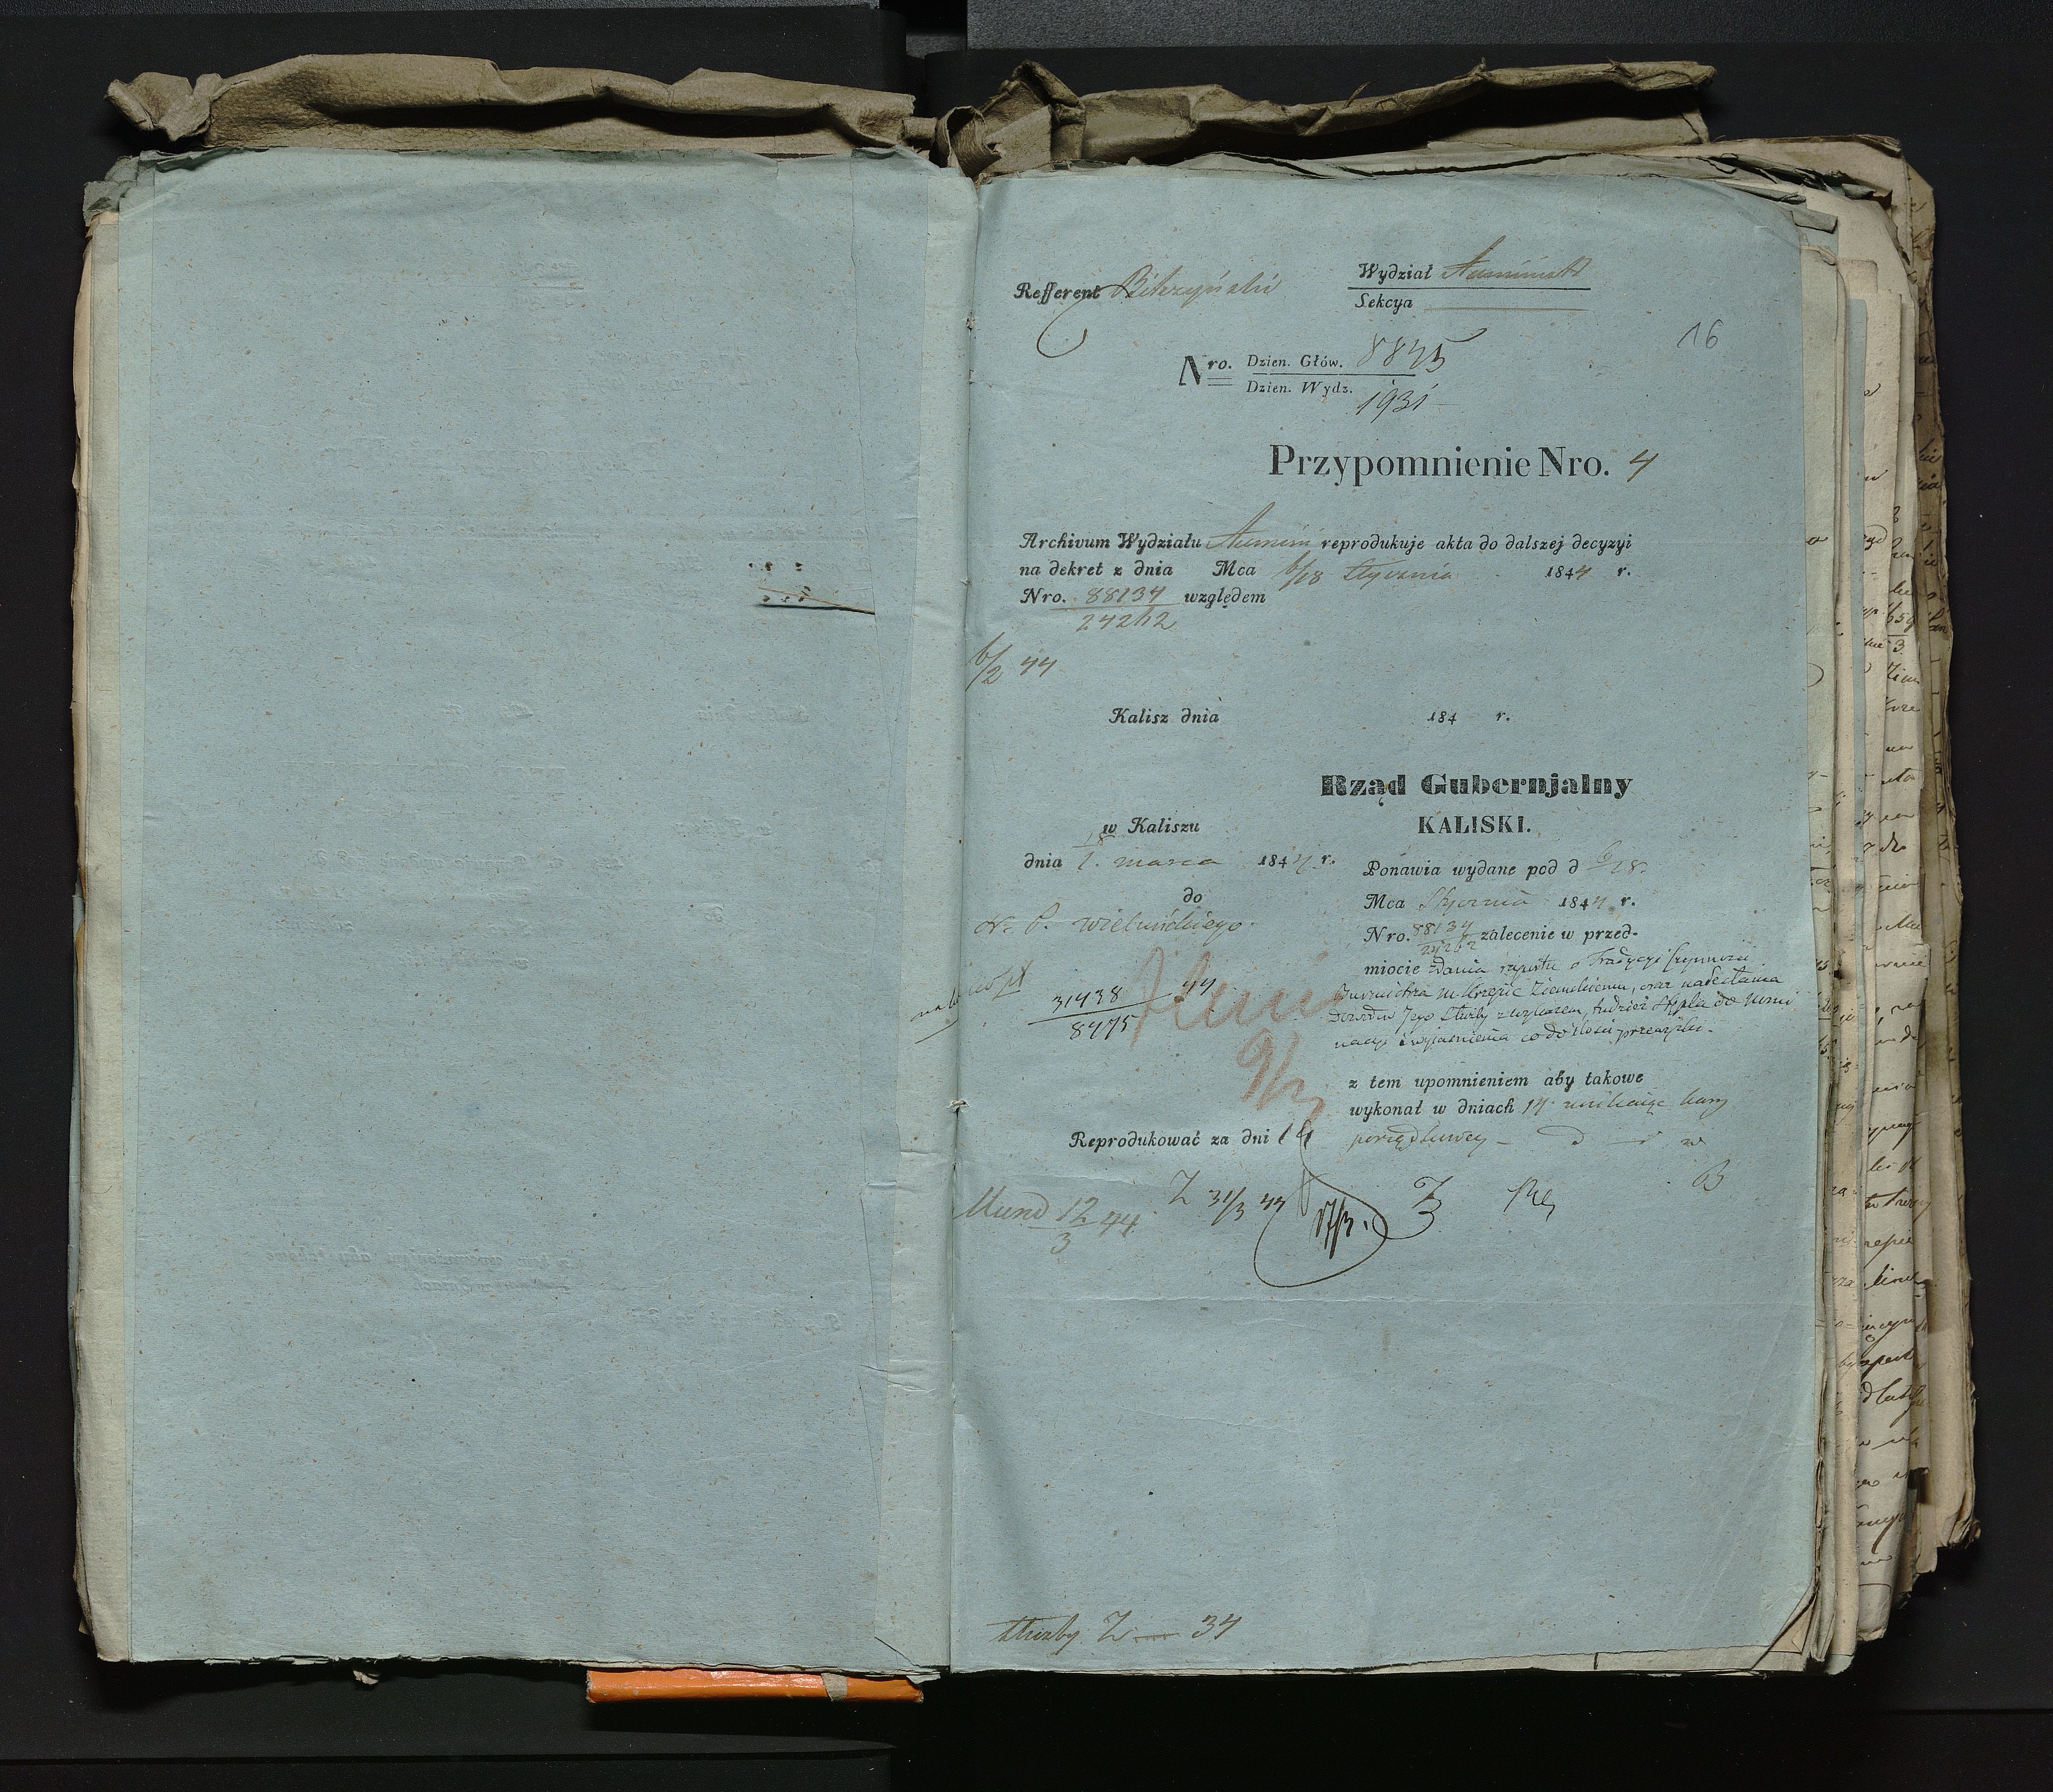 Wydział Administ
Refferent
Sekcya
16
Nro. Dzien. Głów. 8845
Dzien. Wydz. 1931
Przypomnienie Nro. 4
Archivum Wydziału Admin reprodukuje akta do dalszej decyzyi
na dekret z dnia Mca 6/18 Stycznia 1844 r.
Nro. 88134 względem
24262
6/2 44
Kalisz dnia 184 r.
Rząd Gubernjalny
KALISKI.
w Kaliszu
dnia 1. marca 1844 r.
do
N. P. Wieluńskiego
31438 44
8475
Ponawia wydane pod d 6/18.
Mca Stycznia 1844 r.
Nro. 88134 zalecenie w przed-
24262
miocie zdania raportu o Tradycyi czynności
Burmistrza m. Krzepic, oraz nadesłania
Dowodu Jego Służby z wykazem, tudzież Stępla do Nomi
nacyi i wyjaśnienia co do
z tem upomnieniem aby takowe
wykonał w dniach 14 unikając kary
porządkowey
Reprodukować za dni 14
Mund 12/3 44
Z 31/3 44
17/3.
Służby Z 34